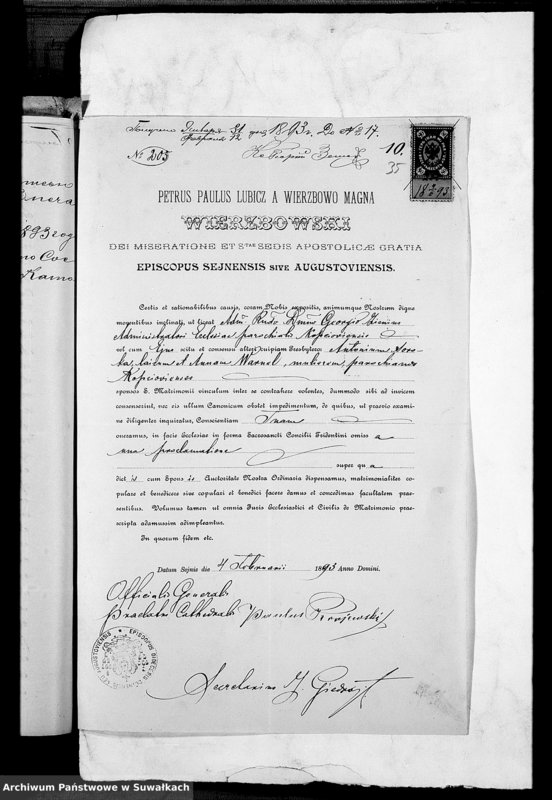 31 1893 г. № 17.
№ 205
10.
35
18 4/2 93
PETRUS PAULUS LUBICZ A WIERZBOWO MAGNA
WIERZBOWSKI
DEI MISERATIONE ET Stae SEDIS APOSTOLICÆ GRATIA
EPISCOPUS SEJNENSIS SIVE AUGUSTOVIENSIS.
Certis et rationabilibus causis, coram Nobis expositis, animumque Nostrum digne
moventibus inclinati, ut liceat Adm. Rndo Dno Georgio
Administratori Ecclesiae parochialis Kopcioviensis
vel cum Ejus scitu et consensu alteri cuipiam Presbytero Antonium
et Annam mulierem, parochianos
Kopciovienses
sponsos S. Matrimonii vinculum inter se contrahere volentes, dummodo sibi ad invicem
consenserint, nec eis ullum Canonicum obstet impedimentum, de quibus, ut praevio exami-
ne diligenter inquiratur, Conscientiam Tuam
oneramus, in facie Ecclesiae in forma Sacrosancti Concilii Tridentini omis a
una proclamatione
super qu a
dict is cum Epons is Auctoritate Nostra Ordinaria dispensamus, matrimonialiter co-
pulare et benedicere sive copulari et benedici facere damus et concedimus facultatem prae-
sentibus. Volumus tamen ut omnia Juris Ecclesiastici et Civilis de Matrimonio prae-
scripta adamussim adimpleantur.
In quorum fidem etc.
Datum Sejnis die 4 Februarii 1893 Anno Domini.
Officialis Generalis
Praelatus Cathedralis Paulus Krajewski
Secretarius J. Giedroyć
Archiwum Państwowe w Suwałkach